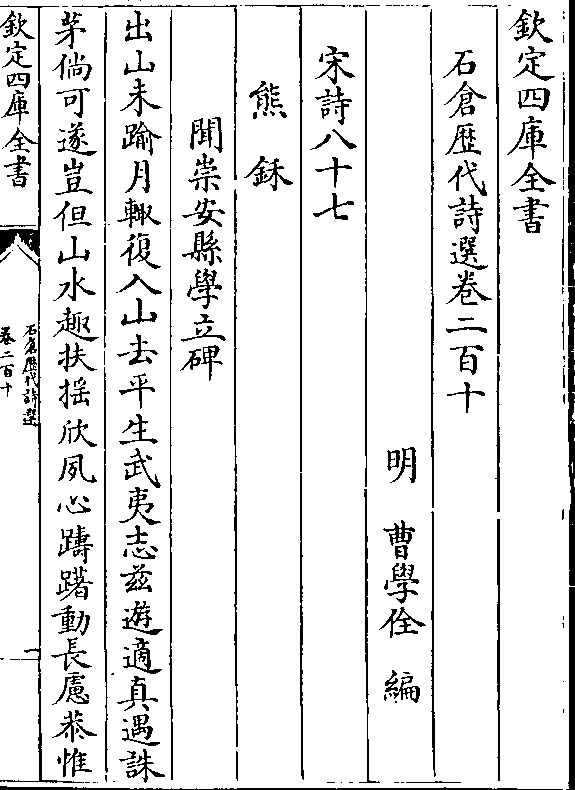 欽定四庫全書
石倉歴代詩選卷二百十
明 曹學佺 編
宋詩八十七
熊鉌
聞崇安縣學立碑
出山未踰月輙復入山去平生武夷志兹遊適真遇誅
茅倘可遂豈但山水趣扶揺欣夙心躊躇動長慮恭惟
欽定四庫全書
石倉歴代詩選
卷二百十
一